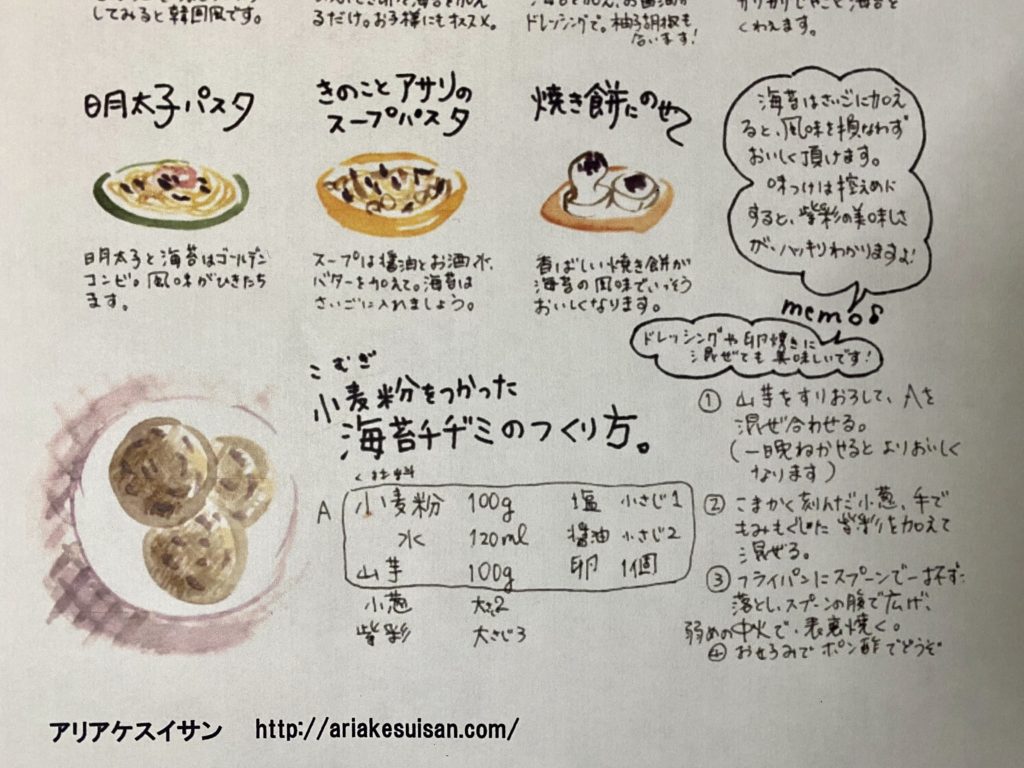 してみると韓国風です。
るだけ。お子様にもオススメ。
ドレッシングで。柚子胡椒も
合います!
くわえます。
明太子パスタ
明太子と海苔はゴールデン
コンビ。風味がひきたち
ます。
きのことアサリの
スープパスタ
スープは醤油とお酒、水、
バターを加えて。海苔は
さいごに入れましょう。
焼き餅にのせて
香ばしい焼き餅が
海苔の風味でいっそう
おいしくなります。
海苔はさいごに加え
ると、風味を損なわず
おいしく頂けます。
味つけは控えめに
すると、紫彩の美味しさ
が、ハッキリわかりますよ!
memo
ドレッシングや卵焼きに
混ぜても美味しいです!
こむぎ
小麦粉をつかった
海苔チヂミのつくり方。
材料
A
小麦粉 100g 塩 小さじ1
水 120ml 醤油 小さじ2
山芋 100g 卵 1個
小葱 大さじ2
紫彩 大さじ3
① 山芋をすりおろして、Aを
混ぜ合わせる。
(一晩ねかせるとよりおいしく
なります)
② こまかく刻んだ小葱、手で
もみもぐした紫彩を加えて
混ぜる。
③ フライパンにスプーンで一杯ずつ
落とし、スプーンの腹で広げ、
弱めの中火で、表裏焼く。
④ お好みでポン酢でどうぞ
アリアケスイサン http://ariakesuisan.com/